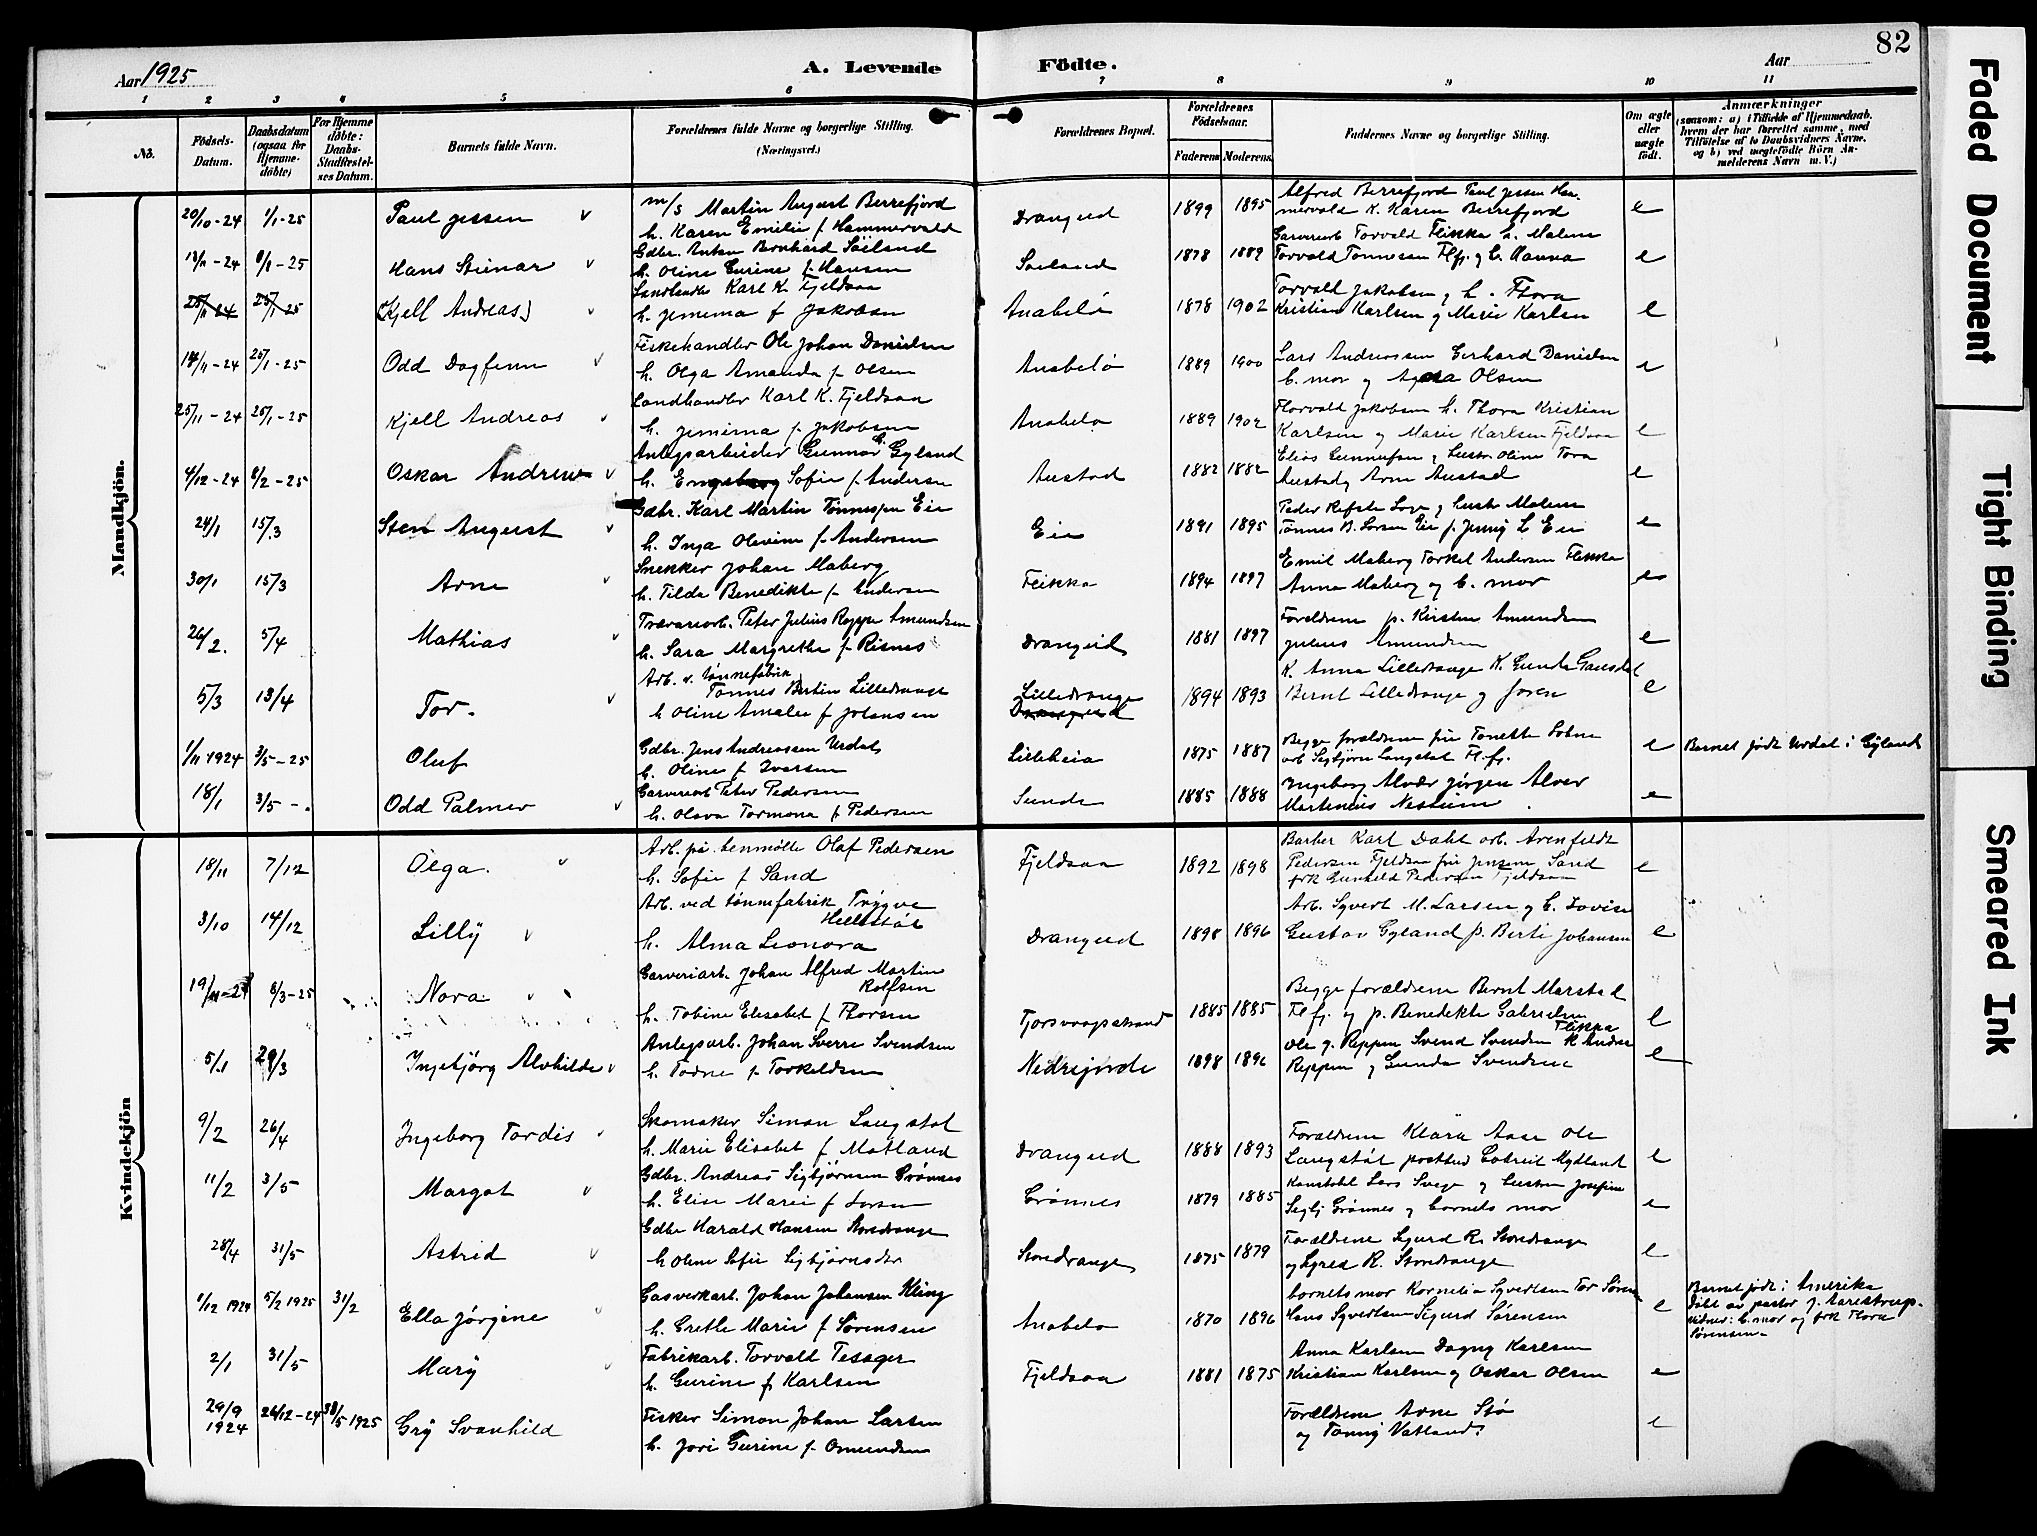 82
Aar 1925
A. Levende
Fødte.
Aar
1 2 3 4 5 6 7 8 9 10 11
No.
Fødsels-Datum.
Daabsdatum (ogsaa for Hjemmedøbte)
For Hjemmedøbte: Daabs-Stadfæstelses Datum.
Barnets fulde Navn.
Forældrenes fulde Navne og borgerlige Stilling. (Næringsvei.)
Forældrenes Bopæl.
Forældrenes Fødselsaar.
Faderens Moderens
Faddernes Navne og borgerlige Stilling.
Om ægte eller uægte født.
Anmærkninger
(saasom: a) i Tilfælde af Hjemmedaab, hvem der har forrettet samme, med Tilføielse af to Daabsvidners Navne, og b) ved uægtefødte Børn Anmelderens Navn m. V.)
Mandkjön.
20/10-24 1/1-25 Paul Jessen m/s Martin August Berrefjord
h. Karen Emilie f. Hammervold Drangeid 1899 1895
Alfred Berrefjord Paul Jessen Hammervold K. Karen Berrefjord e
Hans Steinar Gdbr. Anton Bernhard Söiland
h. Oline Gurine f. Hansen Söiland 1878 1889
Garveriarb Torvald Flikka h. Malene
Torvald Tønnessen Flfj. og h. Hanna e
25/11-24 25/1-25 (Kjell Andreas) Landhandler Karl K. Fjeldsaa
h. Jemima f Jakobsen Anabelø 1878 1902
Torvald Jakobsen og h. Thora
Kristian Karlsen og Marie Karlsen e
18/11-24 25/1-25 Odd Dagfinn Fiskehandler Ole Johan Danielsen
h. Olga Amanda f. Olsen Anabelø 1889 1900
Lars Andreassen Gerhard Danielsen
b. mor og Agna Olsen e
25/11-24 25/1-25 Kjell Andreas Landhandler Karl K. Fjeldsaa
h. Jemima f. Jakobsen Anabelø 1889 1902
Thorvald Jakobsen h. Thora Kristian
Karlsen og Marie Karlsen Fjeldsaa e
4/12-24 8/2-25 Oskar Andrew Anlegsarbeider Gunnar G. Gyland
h. Sofie f. Andersen Austad 1882 1882
Elias Gunnufsen og hustr. Oline Tora
Austad, Arne Austad e
24/1 15/3 Sten August Gdbr. Karl Martin Tønnessen Eie
h. Inga Olevine f. Andersen Eie 1891 1895
Tønnes B. Larsen Eie p. Jenny L Eie e
30/1 15/3 Arne Snekker Johan Maberg
h. Tilda Benedikte f. Andersen Flikka 1894 1897
Emil Maberg Torkel Andersen Flikka
Anna Maberg og b. mor e
26/2. 5/4 Mathias Peter Julius Reppe Amundsen
h. Sara Margrethe f. Risnes Drangeid 1881 1897
Forældrene p. Kirsten Amundsen
Julius Amundsen e
5/3 13/4 Tor. Arb. v. tønnefabrik
Tønnes Bertin Lilledrange
h Oline Amalie f Johansen Lilledrange
Drangeid 1894 1893
K. Anna Lilledrange K. Gunda Gausdal
Bernt Lilledrange og faren e
1/11 1924 3/5-25 Oluf Gdbr. Jens Andreassen Urdal
h. Oline f Iversen Lilleheia 1875 1887
Begge forældrene fru Tonette Lohne
arb Sigbjørn Langstøl Fl.fj. e Barnet født Urdal i Gyland
18/1 3/5 -. Odd Palmer Garveriarb Peter Pedersen
h. Olava Tormona f Pedersen Sunde 1885 1888
Ingeborg Alver Jørgen Alver
Martenius Nesheim. e
Kvindekjön
18/11 7/12 Olga. Arb. på Olaf Pedersen
h. Sofie f Sand Fjeldsaa 1892 1898
Barber Karl Dahl arb. Arenfeldt
Pedersen Fjeldsaa fru Jensine Sand
frk Gunhild Pedersen Fjeldsaa e
3/10 14/12 Lilly Arb. ved tønnefabrik Trygve
Hellestøl
h. Alma Leonora Drangeid 1898 1896
Arb. Syvert M. Larsen og h. Lovise
Gustav Gyland p. Berti Johansen e
19/11-24 8/3-25 Nora Garveriarb. Johan Alfred Martin
Rolfsen
h. Tobine Elisabet f Thorsen Tjorsvaagstrand 1885 1885
Begge forældrene Bernt Marstad
Fl fj. og p. Benedikte Gabrielsen
Flikka e
5/1 29/3 Ingebjørg Alvhilde Anlegsarb. Johan Sverre Svendsen
h. Todne f. Torkildsen Nedrejorde 1898 1896
Ole J. Reppen Svend Svendsen K Andrea
Reppen og Gunda Svendsen e
9/2 26/4 Ingeborg Tordis Skomaker Simon Langstøl
h. Marie Elisabet f Motland Drangeid 1888 1893
Forældrene Klara Aase Ole
Langstøl postbud Gotreit Mydland e
11/2 3/5 Margot Gdbr. Andreas Sigbjørnsen Grønnes
h. Elise Marie f Larsen Grønnes 1879 1885
Lars Svege og hustru Josefine
Sigbj Grønnes og barnets mor e
28/4 31/5 Astrid Gdbr Harald Hansen Stordrange
h Oline Sofie Sigbjørnsdtr Stordrange 1875 1879
Forældrene Sigurd R. Stordrange
og Syrea R. Stordrange e
1/12 1924 5/2 1925 31/2 Ella Jørgine Gasverkarb. Johan Johansen Kling
h. Grethe Marie f Sørensen Anabelø 1870 1896
barnets mor Kornelia Syvertsen Tor Sørensen
Hans Syvertsen Sigurd Sørensen e
Barnet født i Amerika
døbt av pastor J. Aarestrup.
vidner: b. mor og frk Thora
Sørensen
2/1 31/5 Mary Fabrikarb. Torvald Tesager
h. Gurine f Karlsen Fjeldsaa 1881 1875
Anna Karlsen Dagny Karlsen
Kristian Karlsen og Oskar Olsen e
29/9 1924 26/12-24 31/5 1925 Gry Svanhild Fisker Simon Johan Larsen
h. Jovi Gurine f. Omundsen
Forældrene Arne Stø
og Tonny Vatland. e
Faded Document
Tight Binding
Smeared Ink